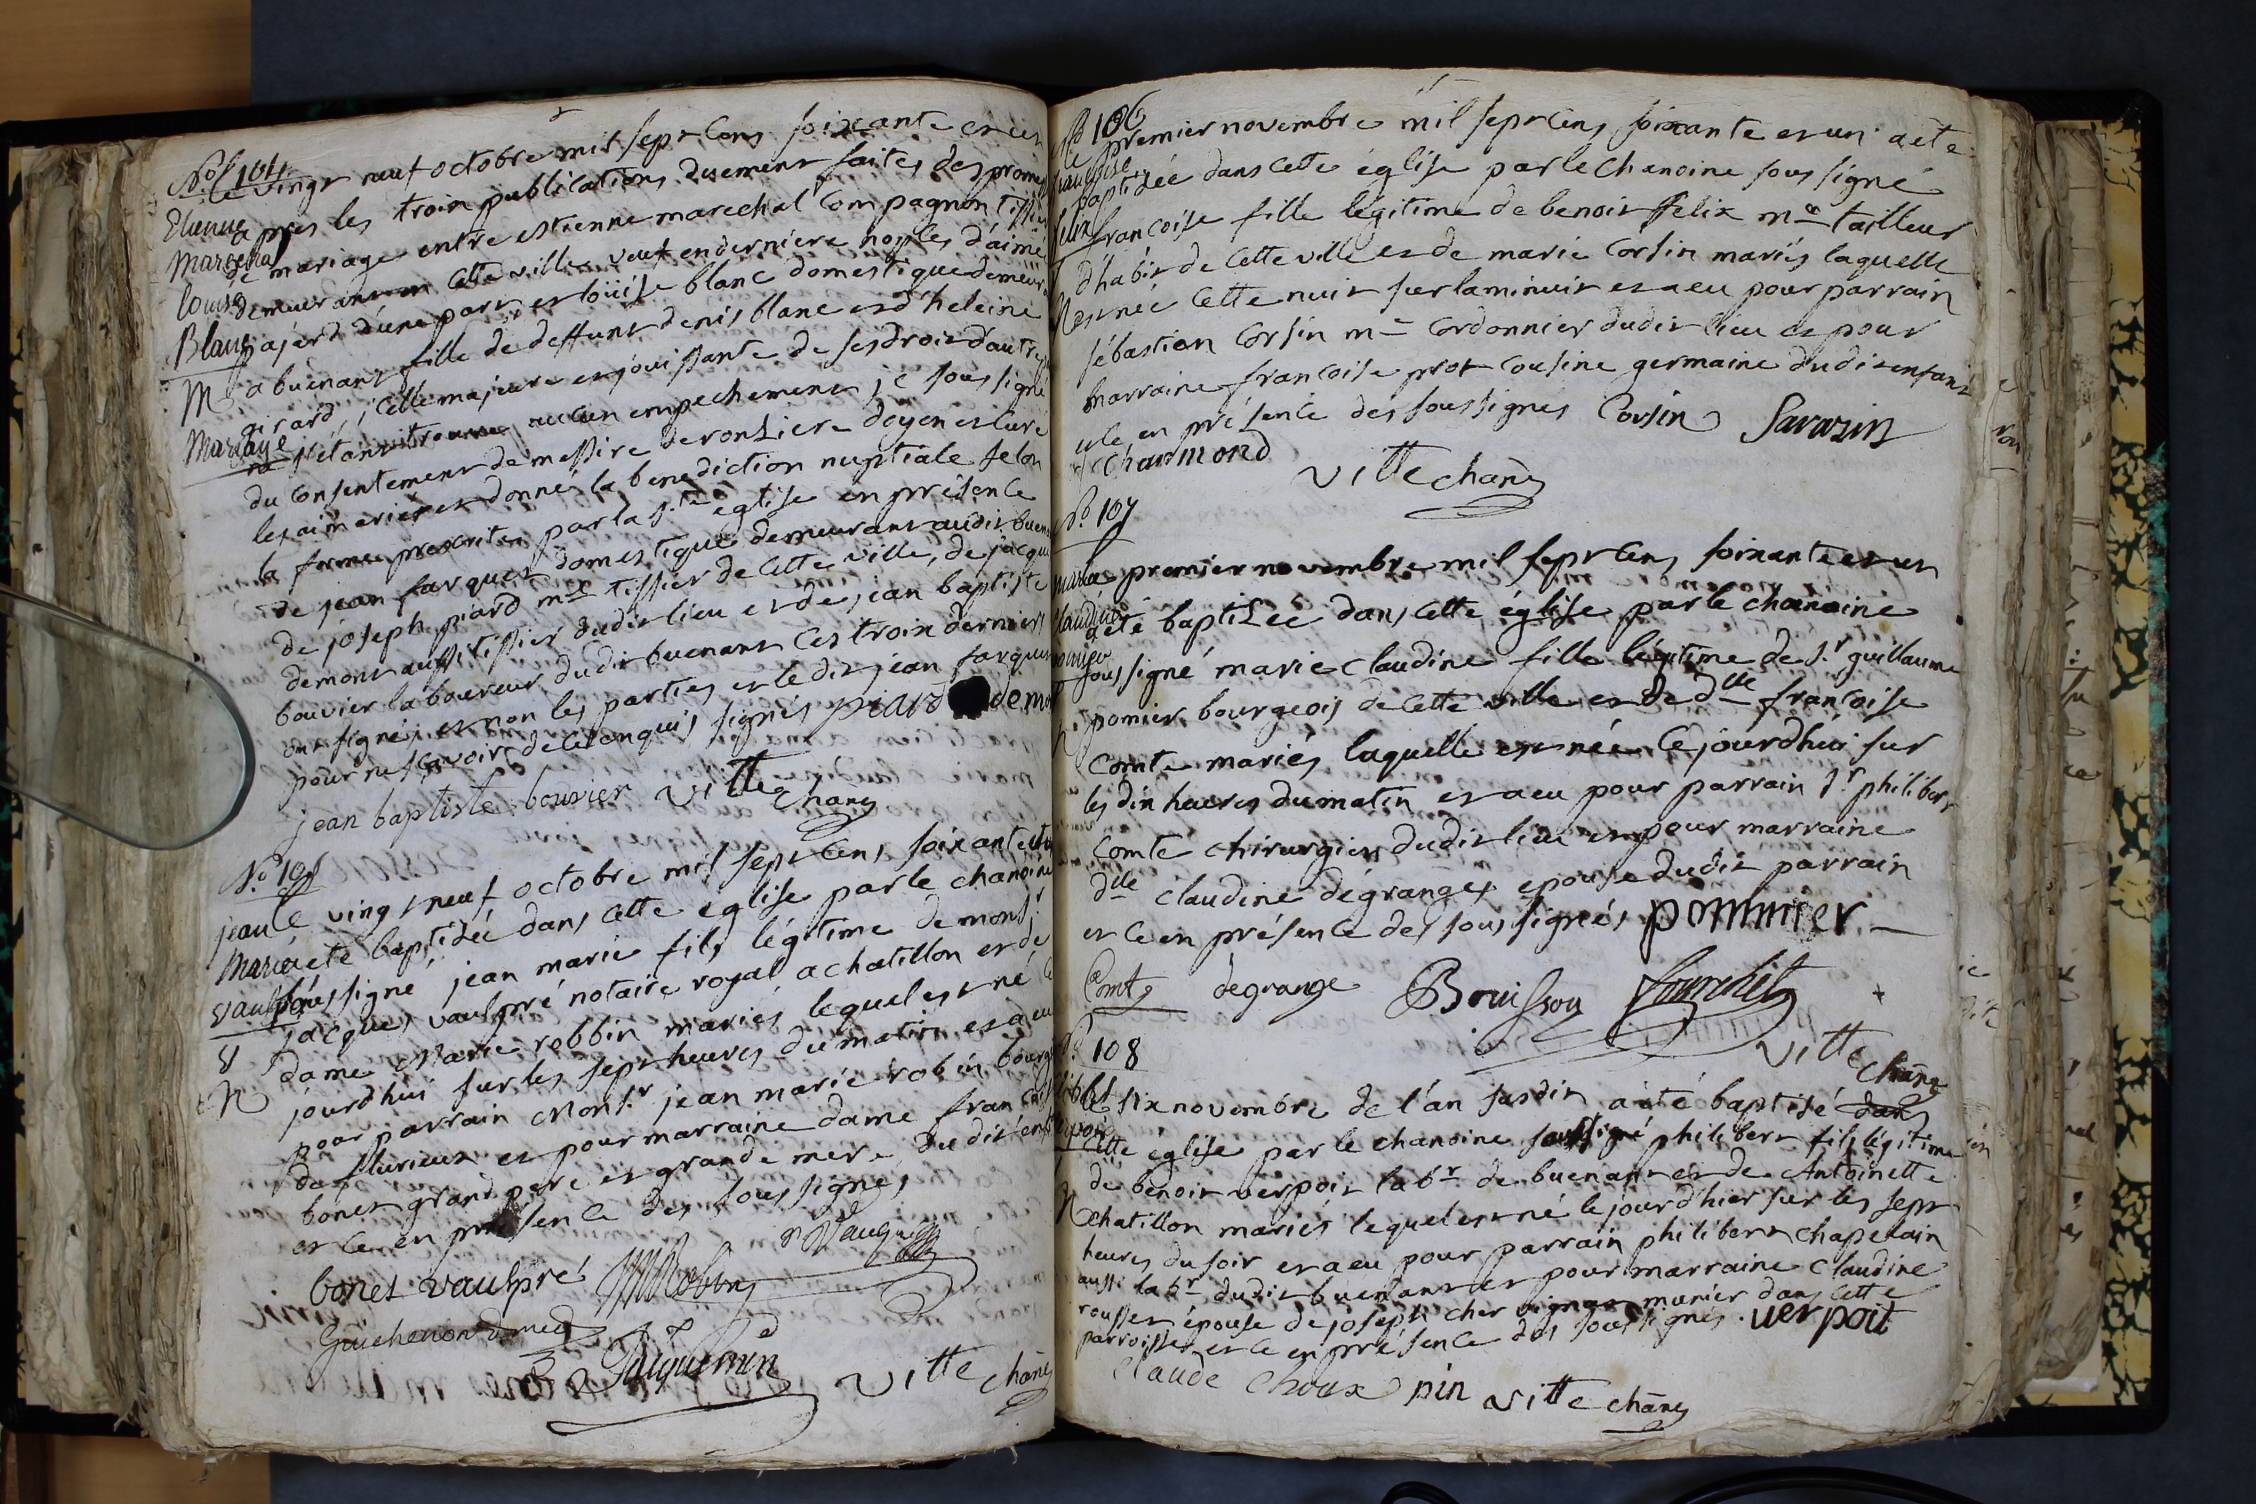 No 104
Etienne
Marechal
louise
Blanc
M
Mariage
le vingt neuf octobre mil sept cens soixante et un
apres les troix publications duement faites des promes
de mariage entre estienne marechal compagnon tissier
demeurant en cette ville veuf en derniere nopces d'aimé
pajerd d'une part et loüise blanc domestique demeurt
a buenant fille de deffunt denis blanc et d'heleine
girard, icelle majeure et jouissante de ses droits d'autre
ne s'étant trouvé aucun empechement je soussigné
du consentement de messire deronziere doyen et curé
les ai mariés et donné la benediction nuptiale selon
la forme prescrite par la ste eglise en présence
de jean farquet domestique demeurant audit buenant
de joseph piard me tissier de cette ville, de jacques
demont aussi tissier dudit lieu et de jean baptiste
bouvier laboureur dudit buenant ces troix derniers
ont signé, et non les parties et ledit jean farquet
pour ne sçavoir de ce enquis signés piard demont
jean baptiste bouvier vitte chane
No 105
jean
Marie
vaulpré
N
le vingt neuf octobre mil sept cens soixante et un
a été baptizée dans cette eglise par le chanoine
soussigné, jean marie fils légitime de monsr
jacques vaulpré notaire royal a chatillon et de
dame Marie robbin mariés lequel est né ce
jourdhui sur les sept heures du matin et a eu
pour parrain Monsr jean marie robin bourg
de flurieux et pour marraine dame francoise
bonet grand pere et grande mere dudit enfant
et ce en présence des soussignés
bonet vaulpré JM Robin
Guichenon dmed
Jaiquemin vitte chane
No 106
francoise
felix
N
le premier novembre mil sept cens soixante et un a ete
baptizée dans cette église par le chanoine soussigné
francoise fille légitime de benoit ffelix me tailleur
d'habit de cette ville et de marie Corsin mariés laquelle
est née cette nuit sur la minuit et a eu pour parrain
sébastien Corsin me Cordonnier dudit lieu et pour
marraine francoise prot cousine germaine dudit enfant
et ce en présence des soussignés Corsin Sarazin
Charmond
vitte chane
No 107
marie
claudine
pomier
N
le premier novembre mil sept cens soixante et un
a été baptizée dans cette église par le chanoine
soussigné marie claudine fille légitime de sr guillaume
pomier bourgeois de cette ville et de dlle francoise
comte mariés laquelle est née ce jourdhui sur
les dix heures du matin et a eu pour parrain sr philibert
comte chirurgien dudit lieu et pour marraine
dlle claudine dégranges epouse dudit parrain
et ce en présence des soussignés pommier
Comte dégrange Bouisson fourchet
vitte chane
No 108
N
le six novembre de l'an susdit a été baptisé dans
cette église par le chanoine soussigné philibert fils légitime
de benoit verpoit labr de buenant et de Antoinette
chatillon mariés lequel est né le jourd'hier sur les sept
heures du soir et a eu pour parrain philibert chapelain
aussi labr dudit buenant et pour marraine claudine
rousset épouse de joseph cher vigneron munier dans cette
parroisse et ce en présence des soussignés. verpoit
claude Choux pin vitte chane